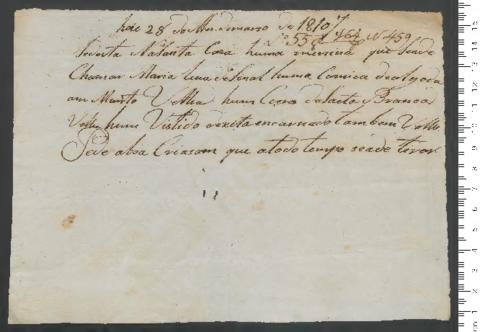 hoie 28 do Mes de marso de 1810
55 464 459
Seveita Na Santa Caza huma menina que seade
Chamar Maria Leva de Sinal huma Camiza de algodam
am Muito Velha hum Coeiro de baeta Branca
Velho hum Vistido de xita encarnado tambem Velho
Pede a boa Criasom que a todo tempo seade